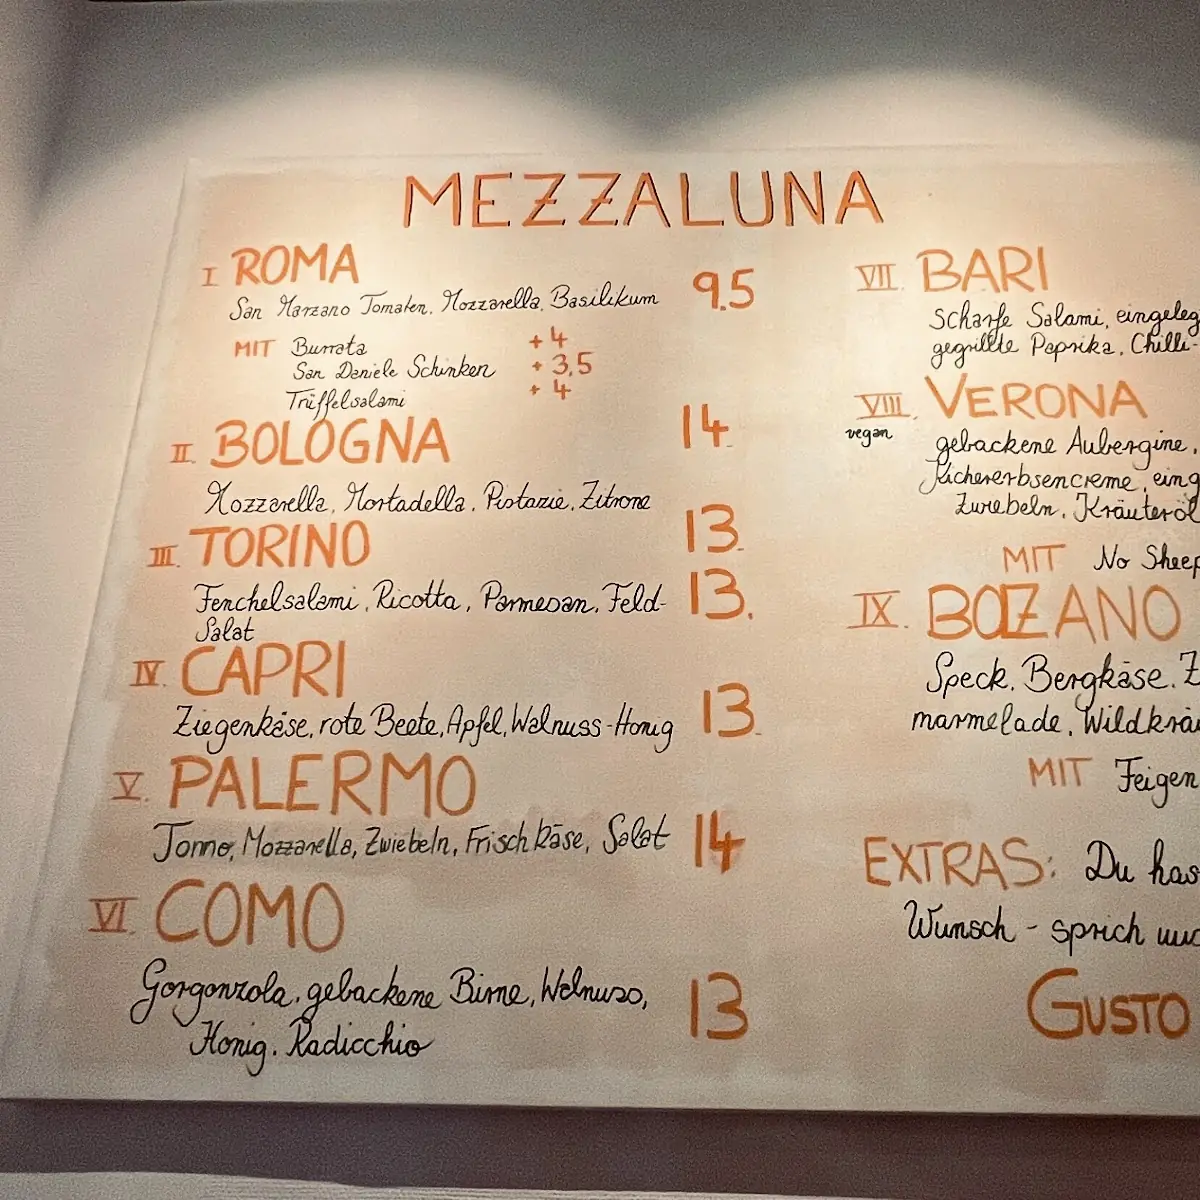 MEZZALUNA
I ROMA 9.5
San Marzano Tomaten, Mozzarella, Basilikum
MIT Burrata + 4
San Daniele Schinken + 3,5
Trüffelsalami + 4
II. BOLOGNA 14.
Mozzarella, Mortadella, Pistazie, Zitrone
III. TORINO 13.
Fenchelsalami, Ricotta, Parmesan, Feld- 13.
Salat
IV. CAPRI
Ziegenkäse, rote Beete, Apfel, Walnuss-Honig 13.
V. PALERMO
Tonno, Mozzarella, Zwiebeln, Frischkäse, Salat 14
VI. COMO
Gorgonzola, gebackene Birne, Walnuss, 13
Honig, Radicchio
VII. BARI
Scharfe Salami, eingeleg
gegrillte Paprika, Chilli-
VIII. VERONA
vegan gebackene Aubergine,
Kichererbsencreme, eing
Zwiebeln, Kräuteröl
MIT No Sheep
IX. BOLZANO
Speck, Bergkäse, Z
marmelade, Wildkräu
MIT Feigen
EXTRAS: Du has
Wunsch - sprich
GUSTO